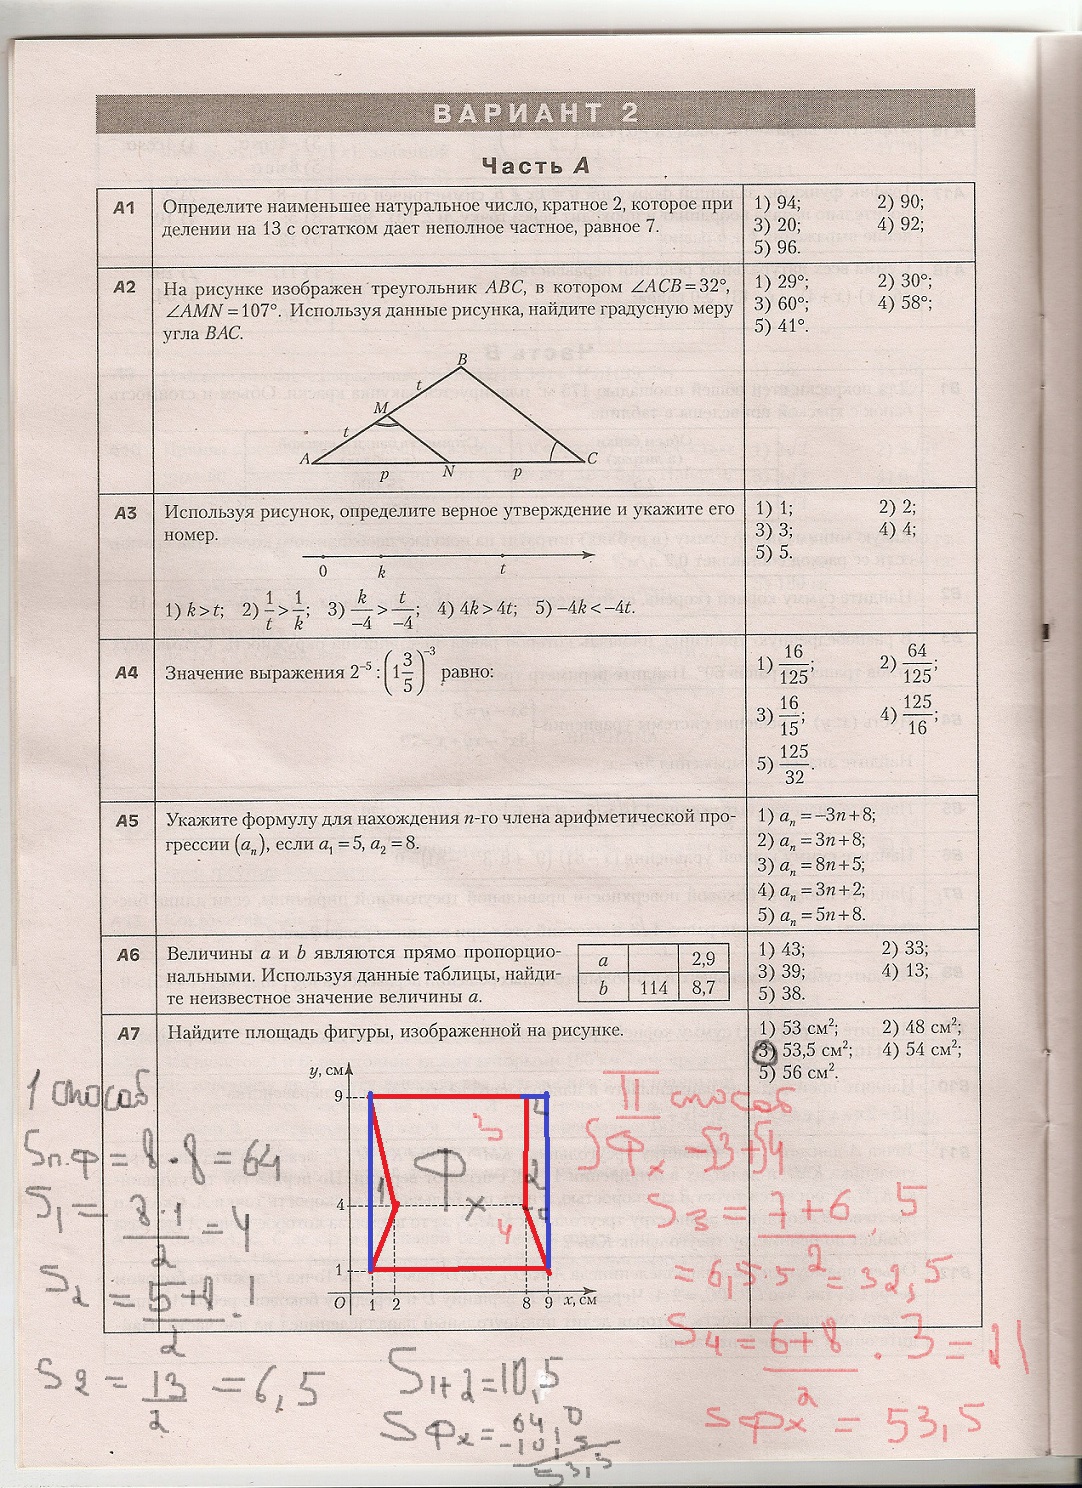 ВАРИАНТ 2
Часть А
А1
Определите наименьшее натуральное число, кратное 2, которое при
делении на 13 с остатком дает неполное частное, равное 7.
1) 94; 2) 90;
3) 20; 4) 92;
5) 96.
А2
На рисунке изображен треугольник ABC, в котором ∠ACB = 32°,
∠AMN = 107°. Используя данные рисунка, найдите градусную меру
угла BAC.
1) 29°; 2) 30°;
3) 60°; 4) 58°;
5) 41°.
B
t
M
t
A
p
N
p
C
А3
Используя рисунок, определите верное утверждение и укажите его
номер.
0 k t
1) k > t; 2) 1/t > 1/k; 3) k/−4 > t/−4; 4) 4k > 4t; 5) −4k < −4t.
1) 1; 2) 2;
3) 3; 4) 4;
5) 5.
А4
Значение выражения 2⁻⁵ : (1 3/5)⁻³ равно:
1) 16/125; 2) 64/125;
3) 16/15; 4) 125/16;
5) 125/32.
А5
Укажите формулу для нахождения n-го члена арифметической про-
грессии (aₙ), если a₁ = 5, a₂ = 8.
1) aₙ = −3n + 8;
2) aₙ = 3n + 8;
3) aₙ = 8n + 5;
4) aₙ = 3n + 2;
5) aₙ = 5n + 8.
А6
Величины a и b являются прямо пропорцио-
нальными. Используя данные таблицы, найди-
те неизвестное значение величины a.
a 2,9
b 114 8,7
1) 43; 2) 33;
3) 39; 4) 13;
5) 38.
А7
Найдите площадь фигуры, изображенной на рисунке.
1) 53 см²; 2) 48 см²;
3) 53,5 см²; 4) 54 см²;
5) 56 см².
y, см
9
4
1
O 1 2 8 9 x, см
1
Фх
3
2
4
1 способ
Sп.ф = 8 · 8 = 64
S₁ = 8·1/2 = 4
S₂ = 5+8/2 · 1
S₂ = 13/2 = 6,5
S1+2 = 10,5
Sфх = 64,0
−10,5
53,5
II способ
SФх = S3 + S4
S3 = 7+6/2 · 5
= 6,5·5 = 32,5
S4 = 6+8/2 · 3 = 21
Sфх = 53,5